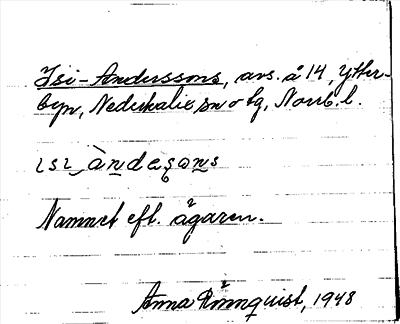 Isi-Anderssons, avs. å 14, Ytter-
byn, Nederkalix sn o tg, Norrb. l.
ɩsɩ àndəsɷns
Namnet eft. ägaren.
Anna Rönnquist, 1948